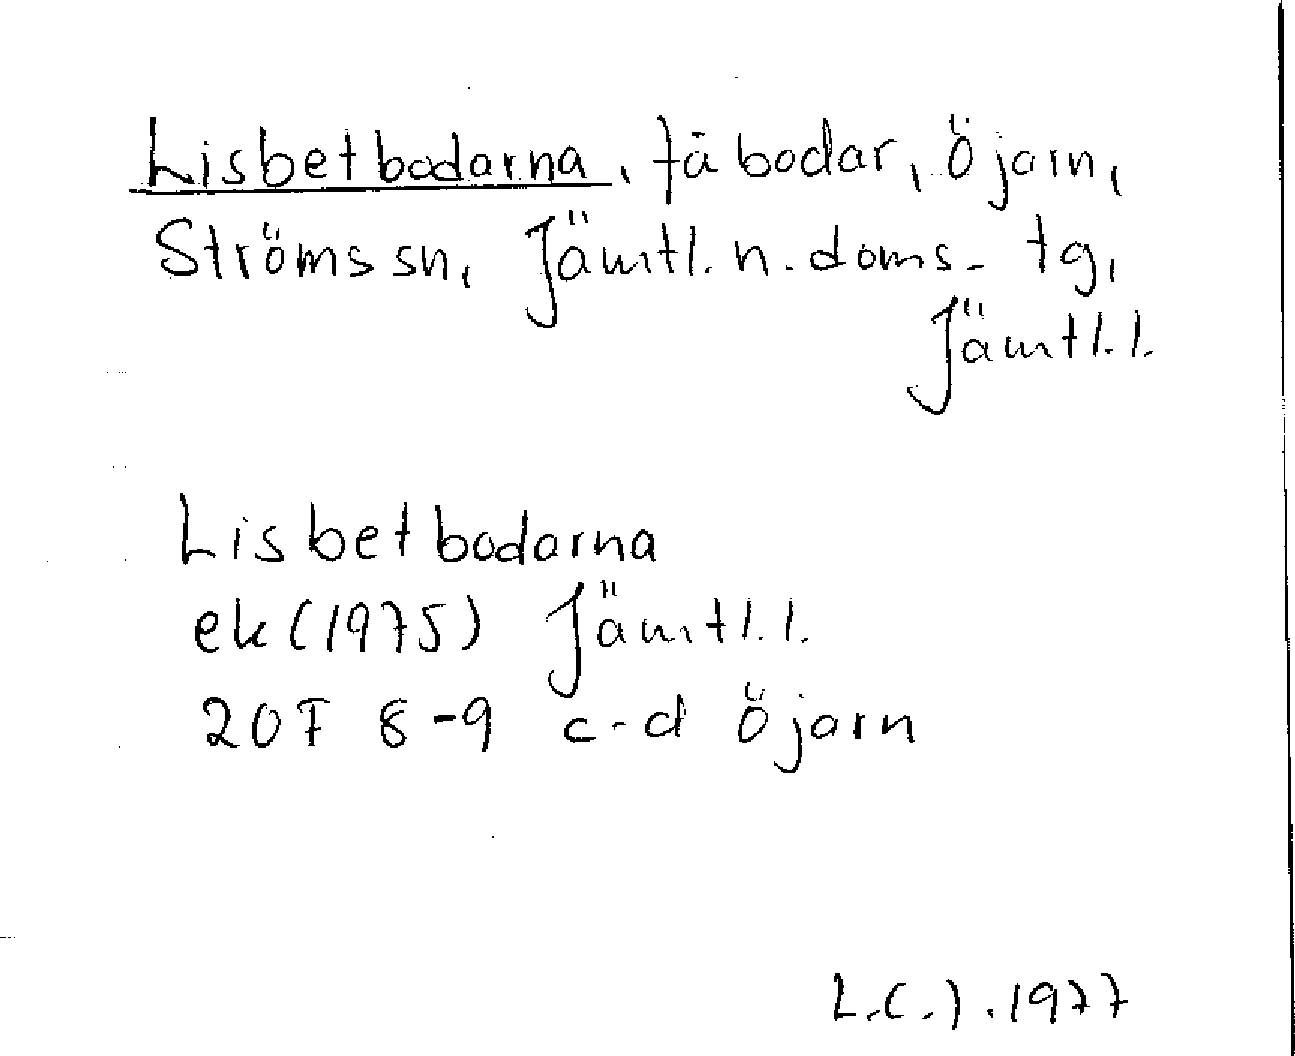 Lisbetbodarna, fäbodar, Öjarn,
Ströms sn, Jämtl. n. doms- tg,
Jämtl. l.
Lisbetbodarna
ek (1975) Jämtl. l.
20F 8-9 c-d Öjarn
L.C.J. 1977